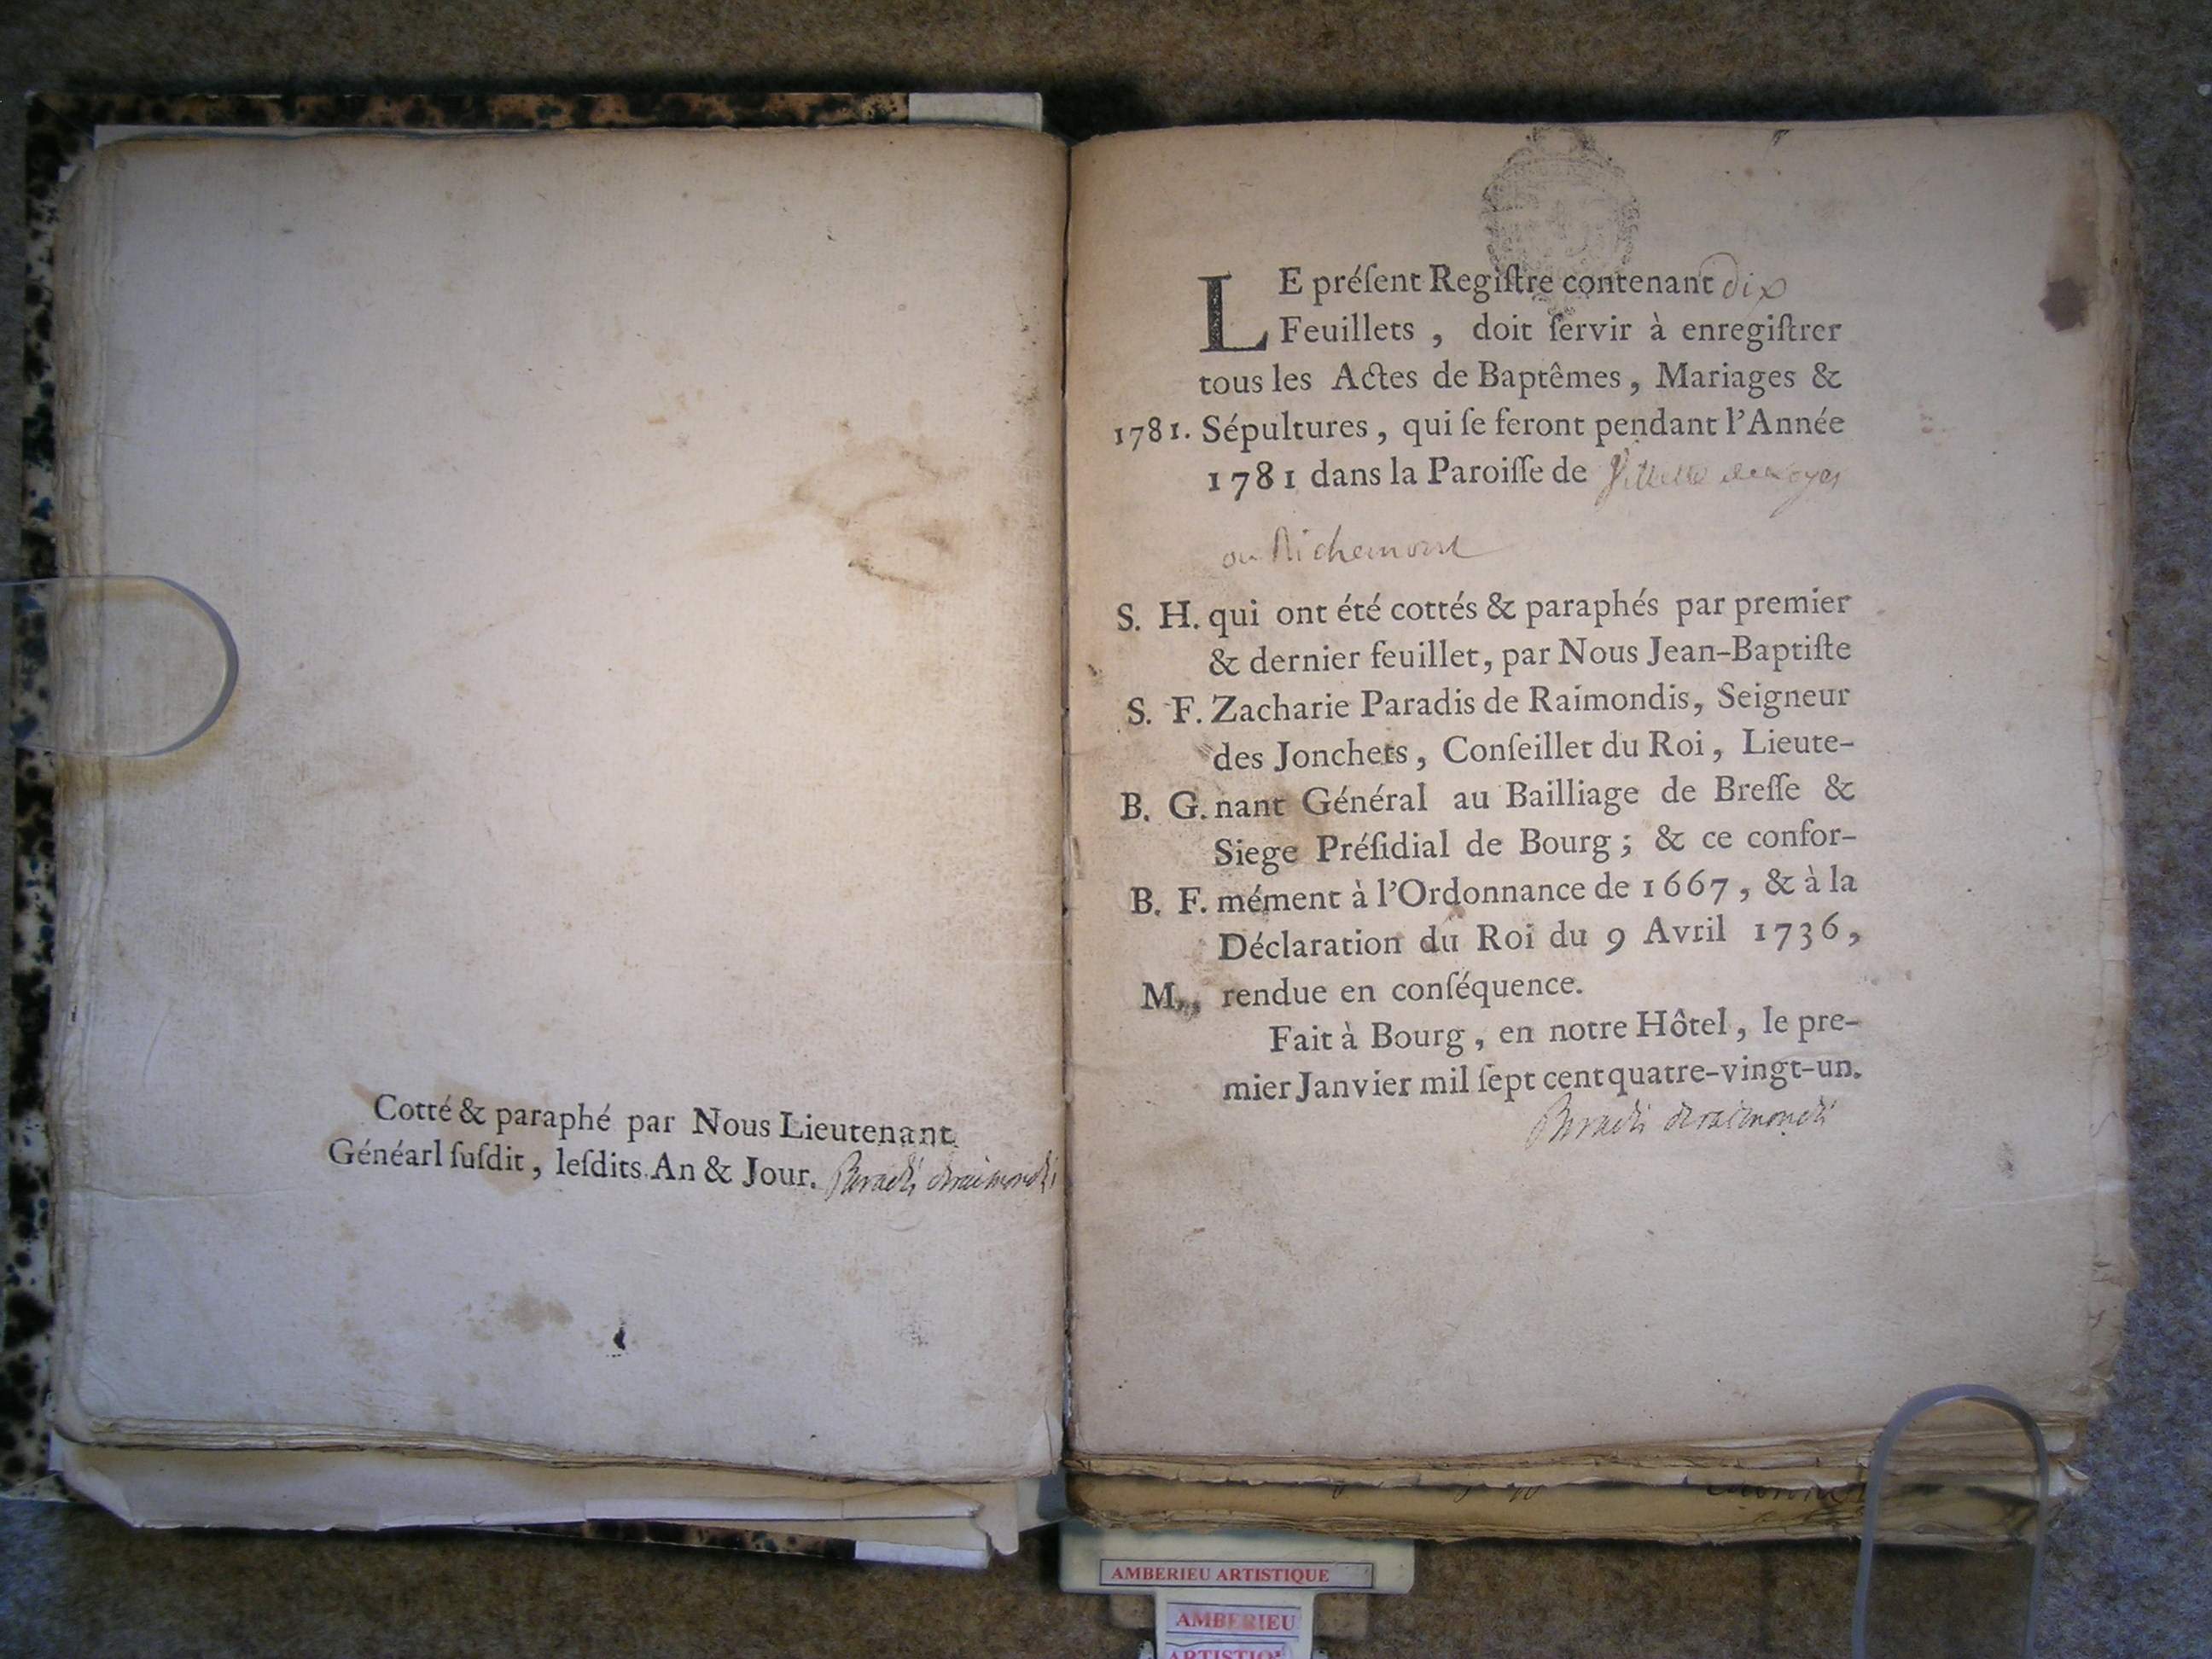 Cotté & paraphé par Nous Lieutenant
Généarl ſuſdit, leſdits An & Jour. Paradis deraimondis
LE préſent Regiſtre contenant dix
Feuillets, doit ſervir à enregiſtrer
tous les Actes de Baptêmes, Mariages &
1781. Sépultures, qui ſe feront pendant l'Année
1781 dans la Paroiſſe de Villette de Loyes
ou Richemont
S. H. qui ont été cottés & paraphés par premier
& dernier feuillet, par Nous Jean-Baptiſte
S. F. Zacharie Paradis de Raimondis, Seigneur
des Jonchets, Conſeillet du Roi, Lieute-
B. G. nant Général au Bailliage de Breſſe &
Siege Préſidial de Bourg; & ce confor-
B. F. mément à l'Ordonnance de 1667, & à la
Déclaration du Roi du 9 Avril 1736,
M,, rendue en conſéquence.
Fait à Bourg, en notre Hôtel, le pre-
mier Janvier mil ſept cent quatre-vingt-un.
Paradis deraimondis
AMBERIEU ARTISTIQUE
AMBERIEU
ARTISTIQUE